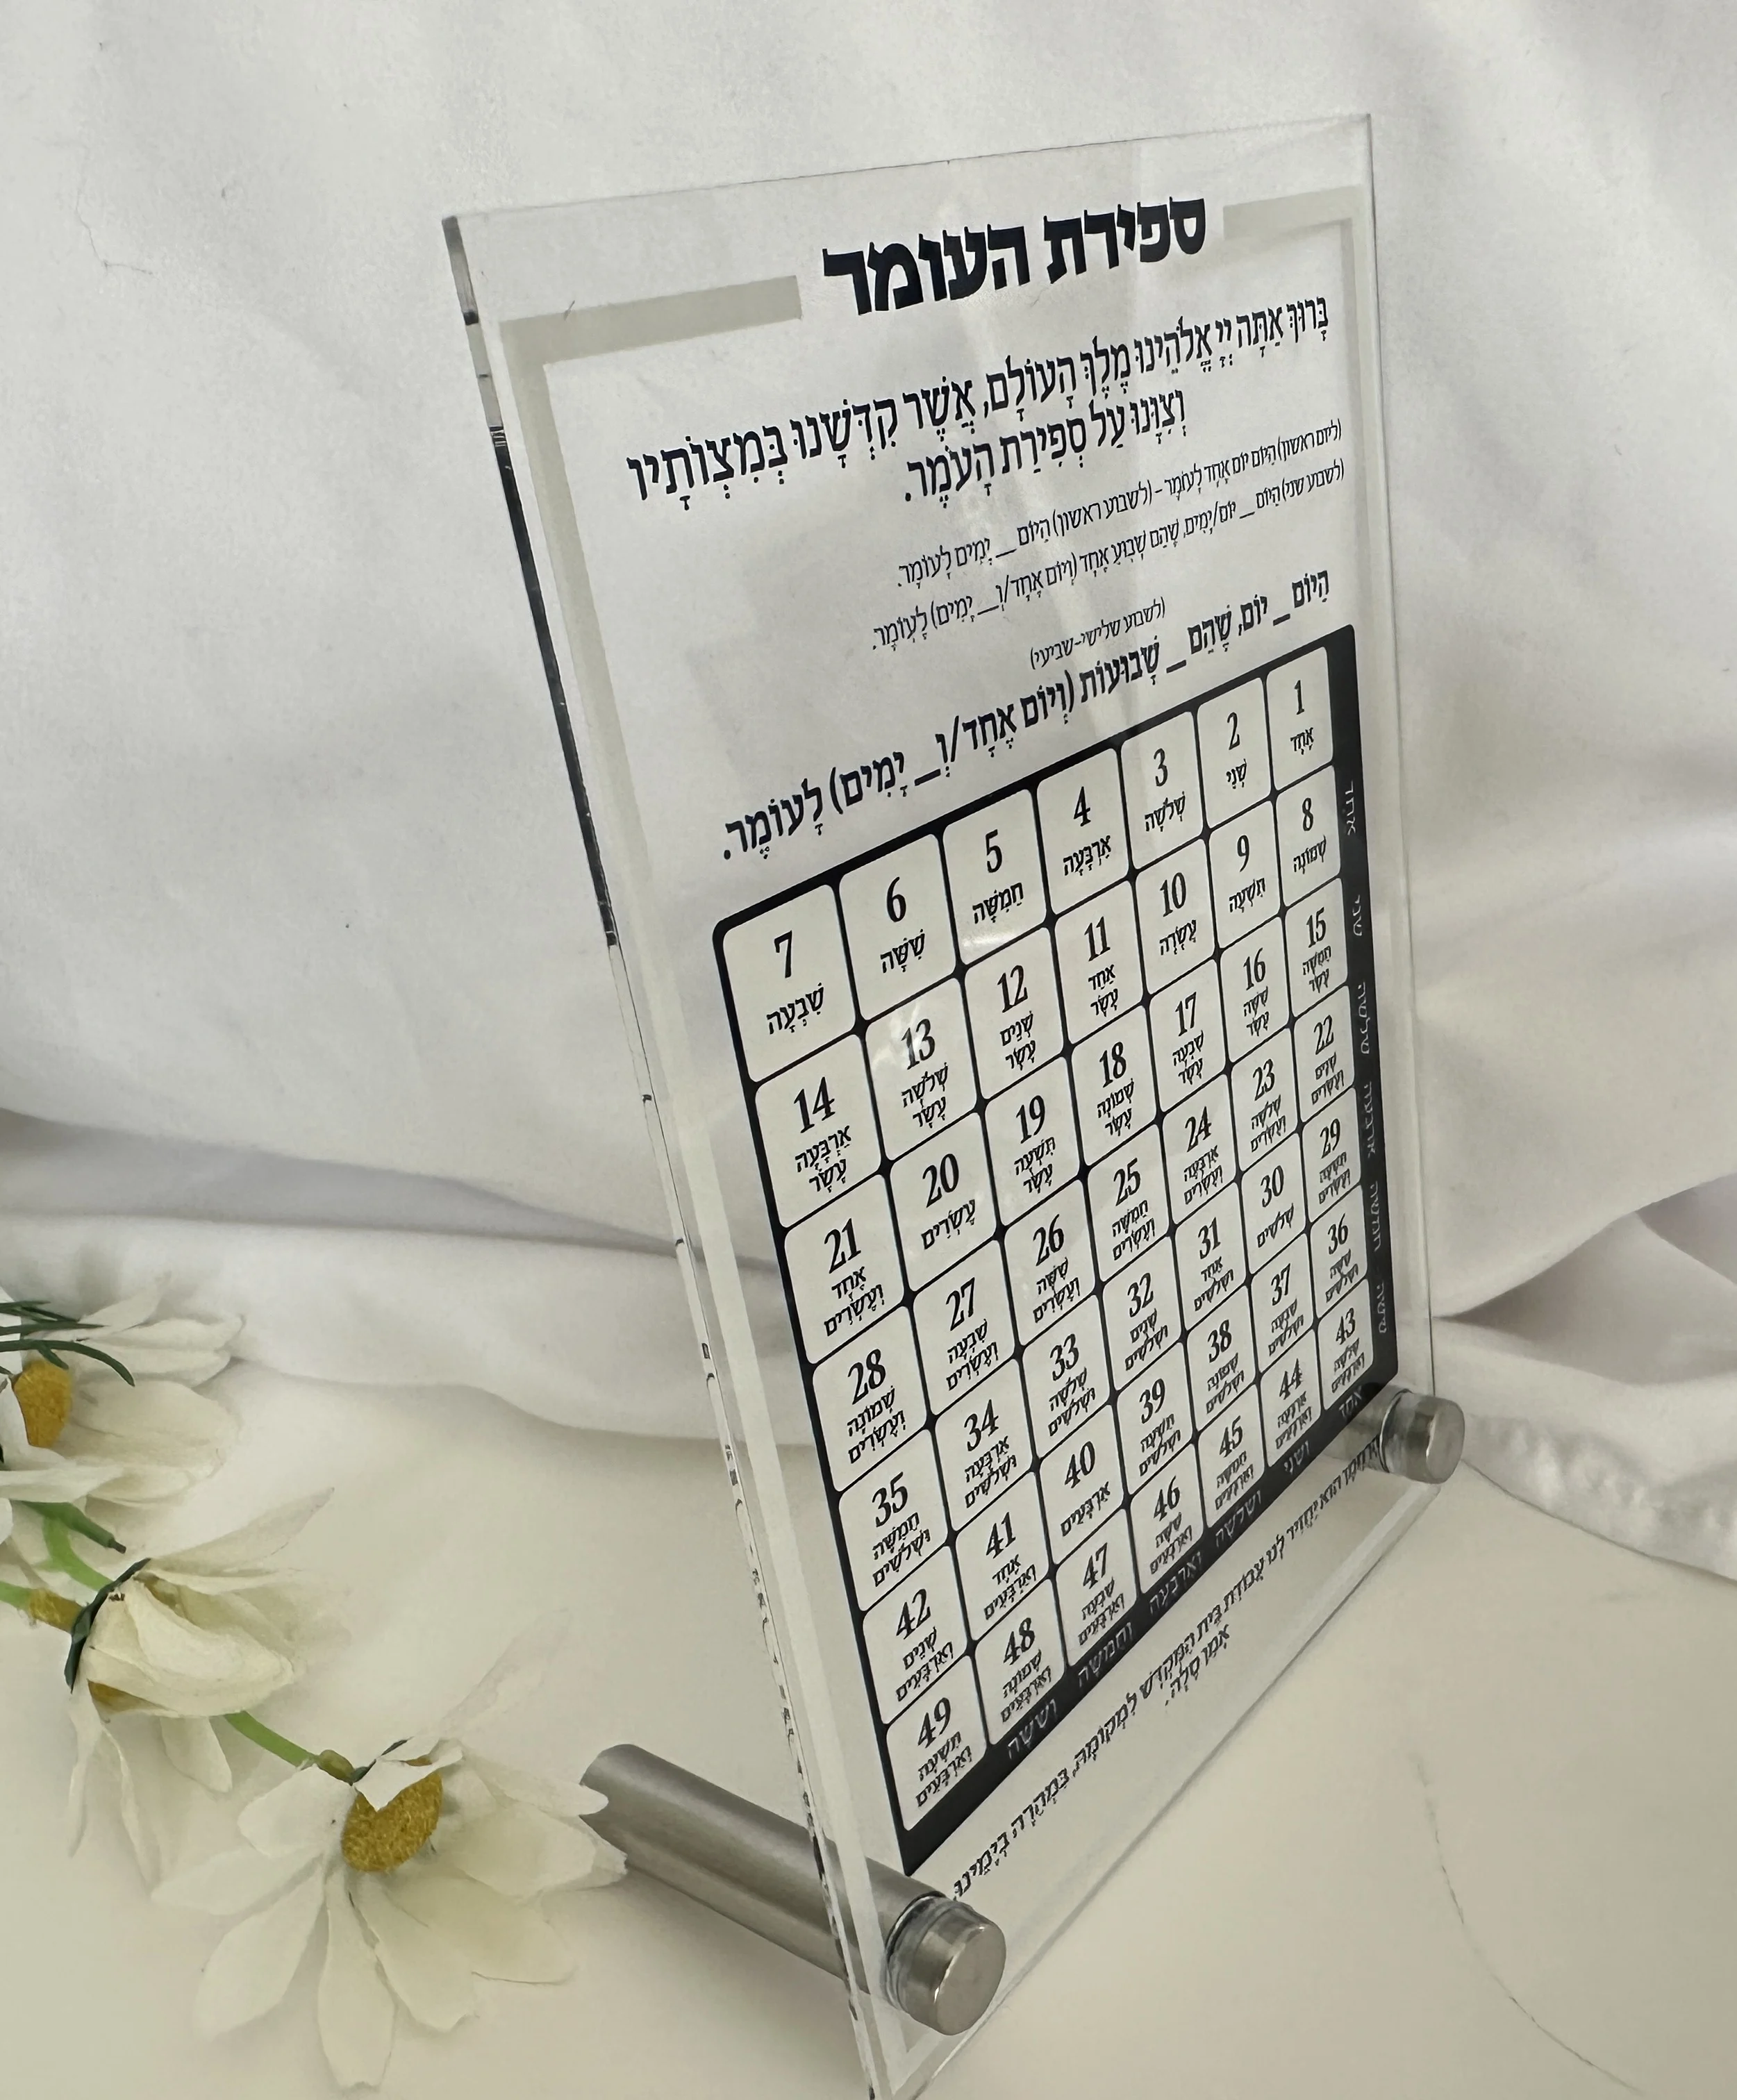 ספירת העומר
בָּרוּךְ אַתָּה יְיָ אֱלֹהֵינוּ מֶלֶךְ הָעוֹלָם, אֲשֶׁר קִדְּשָׁנוּ בְּמִצְוֹתָיו
וְצִוָּנוּ עַל סְפִירַת הָעֹמֶר.
(ליום ראשון) הַיּוֹם יוֹם אֶחָד לָעוֹמֶר - (לשבוע ראשון) הַיּוֹם _ יָמִים לָעוֹמֶר.
(לשבוע שני) הַיּוֹם _ יוֹם/יָמִים, שֶׁהֵם שָׁבוּעַ אֶחָד (וְיוֹם אֶחָד/וְ_ יָמִים) לָעוֹמֶר.
(לשבוע שלישי-שביעי)
הַיּוֹם _ יוֹם, שֶׁהֵם _ שָׁבוּעוֹת (וְיוֹם אֶחָד/וְ_ יָמִים) לָעוֹמֶר.
1 2 3 4 5 6 7
אֶחָד שְׁנֵי שְׁלֹשָׁה אַרְבָּעָה חֲמִשָּׁה שִׁשָּׁה שִׁבְעָה
אחד
8 9 10 11 12 13 14
שְׁמוֹנָה תִּשְׁעָה עֲשָׂרָה אַחַד עָשָׂר שְׁנֵים עָשָׂר שְׁלֹשָׁה עָשָׂר אַרְבָּעָה עָשָׂר
שני
15 16 17 18 19 20 21
חֲמִשָּׁה עָשָׂר שִׁשָּׁה עָשָׂר שִׁבְעָה עָשָׂר שְׁמוֹנָה עָשָׂר תִּשְׁעָה עָשָׂר עֶשְׂרִים אֶחָד וְעֶשְׂרִים
שלשה
22 23 24 25 26 27 28
שְׁנַיִם וְעֶשְׂרִים שְׁלֹשָׁה וְעֶשְׂרִים אַרְבָּעָה וְעֶשְׂרִים חֲמִשָּׁה וְעֶשְׂרִים שִׁשָּׁה וְעֶשְׂרִים שִׁבְעָה וְעֶשְׂרִים שְׁמוֹנָה וְעֶשְׂרִים
ארבעה
29 30 31 32 33 34 35
תִּשְׁעָה וְעֶשְׂרִים שְׁלֹשִׁים אֶחָד וּשְׁלֹשִׁים שְׁנַיִם וּשְׁלֹשִׁים שְׁלֹשָׁה וּשְׁלֹשִׁים אַרְבָּעָה וּשְׁלֹשִׁים חֲמִשָּׁה וּשְׁלֹשִׁים
חמשה
36 37 38 39 40 41 42
שִׁשָּׁה וּשְׁלֹשִׁים שִׁבְעָה וּשְׁלֹשִׁים שְׁמוֹנָה וּשְׁלֹשִׁים תִּשְׁעָה וּשְׁלֹשִׁים אַרְבָּעִים אֶחָד וְאַרְבָּעִים שְׁנַיִם וְאַרְבָּעִים
ששה
43 44 45 46 47 48 49
שְׁלֹשָׁה וְאַרְבָּעִים אַרְבָּעָה וְאַרְבָּעִים חֲמִשָּׁה וְאַרְבָּעִים שִׁשָּׁה וְאַרְבָּעִים שִׁבְעָה וְאַרְבָּעִים שְׁמוֹנָה וְאַרְבָּעִים תִּשְׁעָה וְאַרְבָּעִים
אחד ושני ושלשה וארבעה וחמשה וששה
הוּא יַחֲזִיר לָנוּ עֲבוֹדַת בֵּית הַמִּקְדָּשׁ לִמְקוֹמָהּ, בִּמְהֵרָה בְיָמֵינוּ
אָמֵן סֶלָה.